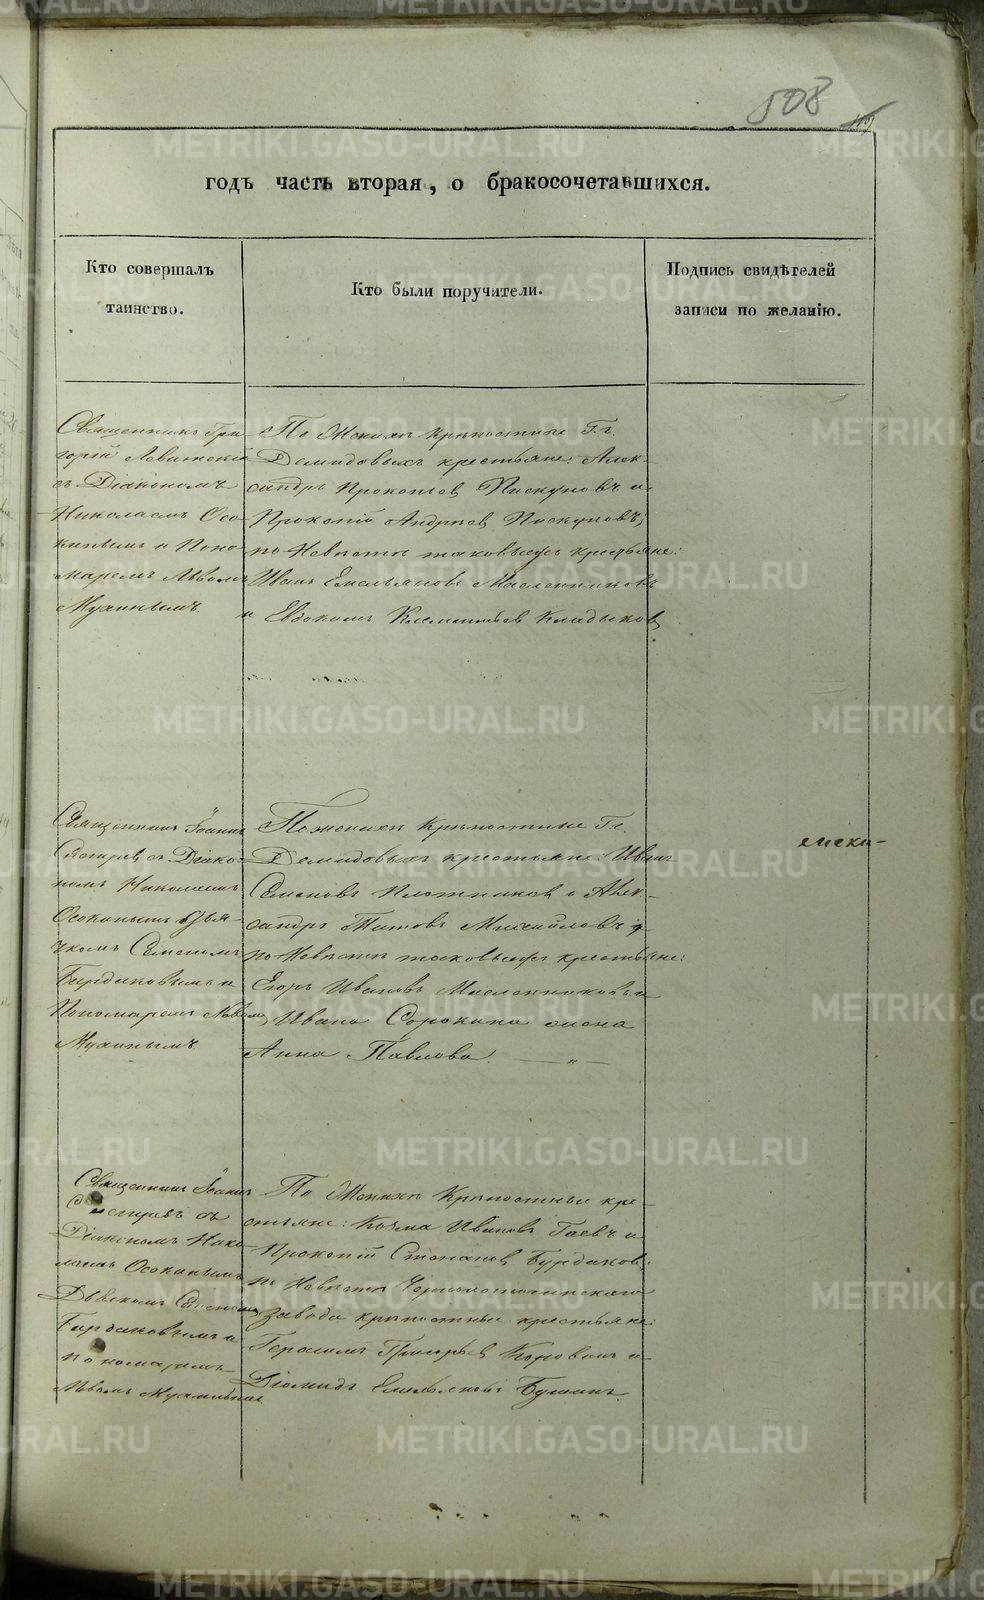 508
годъ часть вторая, о бракосочетавшихся.
Кто совершалъ
таинство.
Кто были поручители.
Подпись свидѣтелей
записи по желанію.
Священникъ Гри
горій Левитскій
съ Діакономъ
Николаемъ Осо
кинымъ и Поно
маремъ Львомъ
Мухинымъ
По Женихѣ крѣпостные Гг.
Демидовыхъ крестьяне: Алек-
сандръ Прокопьев Пискуновъ и
Прокопій Андреев Пискуновъ;
по Невѣстѣ таковыхъ крестьяне:
Иванъ Емельяновъ Масленниковъ
и Евдокимъ Клементьев Кладыков
Священникъ Іоаннъ
съ Діако-
номъ Николаемъ
Осокинымъ Дья-
чкомъ Семеномъ
Бирдюковымъ и
Пономаремъ Львомъ
Мухинымъ
По женихѣ Крѣпостные Гг.
Демидовыхъ крестьяне: Иванъ
Семеновъ Плотников и Алек-
сандръ Титовъ Михайловъ
по Невѣстѣ таковыхъ крестьяне:
Егоръ Ивановъ Масленниковъ и
Ивана Сорокина жена
Анна Павлова.
Священникъ Іоаннъ
съ
Діакономъ Нико
лаемъ Осокинымъ
Дьячкомъ Семеномъ
Бирдюковымъ и
пономаремъ
Львомъ Мухинымъ
По Женихѣ Крѣпостные кре-
стьяне: Козма Ивановъ Гаевъ и
Прокопій Степанов Бурдаков;
по Невѣстѣ Черноисточинскаго
завода крѣпостные крестьяне:
Герасимъ Григорьев Коровин и
Діомидъ Емельяновъ
METRIKI.GASO-URAL.RU